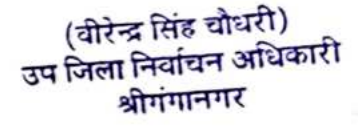 (वीरेन्द्र सिंह चौधरी)
उप जिला निर्वाचन अधिकारी
श्रीगंगानगर